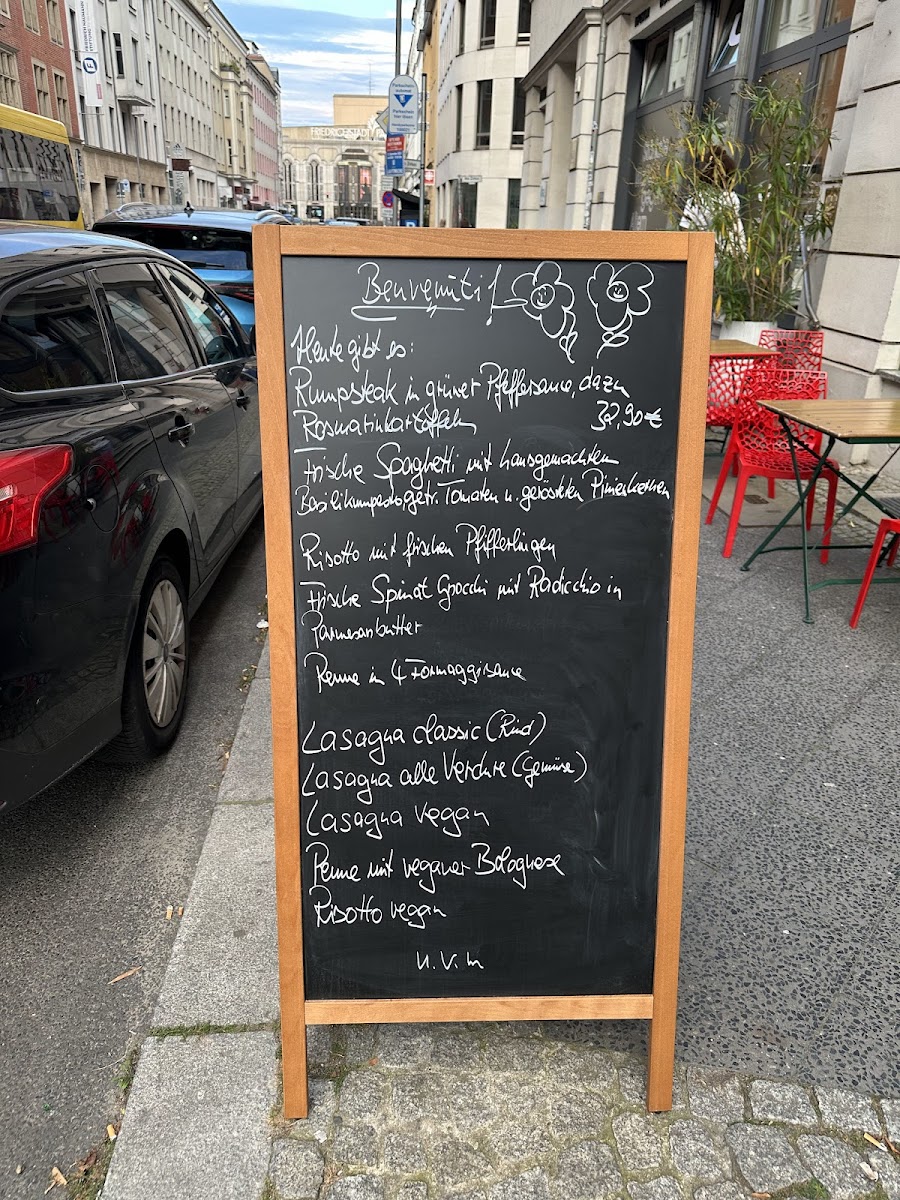 FRIEDRICHSTADT
Benvenuti!
Heute gibt es:
Rumpsteak in grüner Pfeffersauce, dazu
Rosmarinkartoffeln 32,90€
Frische Spaghetti mit hausgemachtem
Basilikumpesto, getr. Tomaten u. gerösteten Pinienkernen
Risotto mit frischen Pfifferlingen
Frische Spinat Gnocchi mit Radicchio in
Parmesanbutter
Penne in 4 Formaggisauce
Lasagna classic (Rind)
Lasagna alle Verdure (Gemüse)
Lasagna vegan
Penne mit veganer Bolognese
Risotto vegan
u.v.m